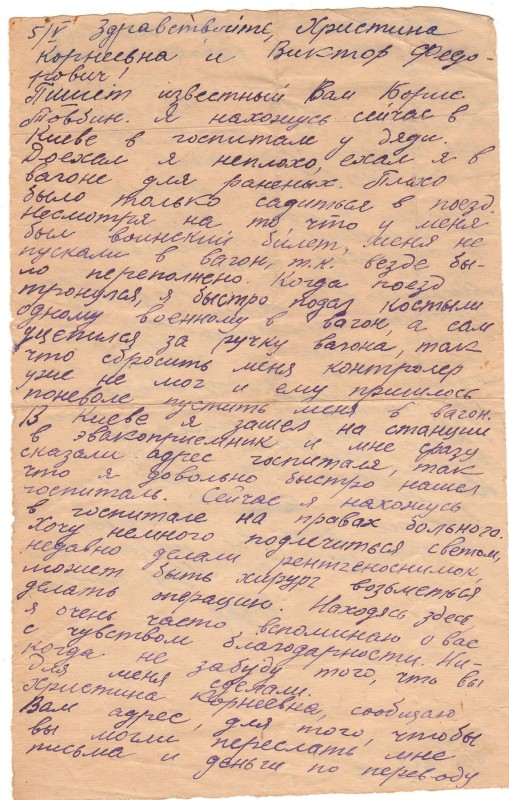 5/V Здравствуйте, Христина
Корнеевна и Виктор Федо-
рович!
Пишет известный Вам Борис
Товбин. Я нахожусь сейчас в
Киеве в госпитале у дяди.
Доехал я неплохо, ехал я в
вагоне для раненых. Плохо
было только садиться в поезд.
несмотря на то, что у меня
был воинский билет, меня не
пускали в вагон, т.к. везде бы-
ло переполнено. Когда поезд
тронулся, я быстро подал костыли
одному военному в вагон, а сам
уцепился за ручку вагона, так
что сбросить меня контролер
уже не мог и ему пришлось
поневоле пустить меня в вагон.
В Киеве я зашел на станции
в эвакоприемник и мне сразу
сказали адрес госпиталя, так
что я довольно быстро нашел
госпиталь. Сейчас я нахожусь
в госпитале на правах больного.
Хочу немного подлечиться светом,
недавно делали рентгеноснимок,
может быть хирург возьметься
делать операцию. Находясь здесь
я очень часто вспоминаю о вас
с чувством благодарности. Ни-
когда не забуду того, что вы
для меня сделали.
Христина Корнеевна, сообщаю
Вам адрес, для того, чтобы
вы могли переслать мне
письма и деньги по переводу